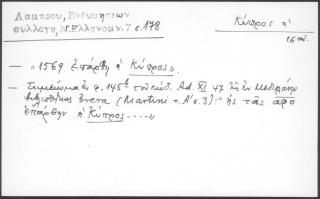 Λαμπρου, Ενθυμήσεων
συλλογή, Ν. Ελληνομν. 7 σ.178
Κύπρος ἡ
16 αἰ.
— "1569 ἐπάρθη ἡ Κύπρος".
— Σημείωμα ἐν φ. 145 τοῦ κώδ. Ad. XI 47 τῆς ἐν Μεδιολάνῳ
βιβλιοθήκης Brera (Martini τ. Α' σ. 3): " τὰς
ἐπάρθην ἡ Κύπρος ...."